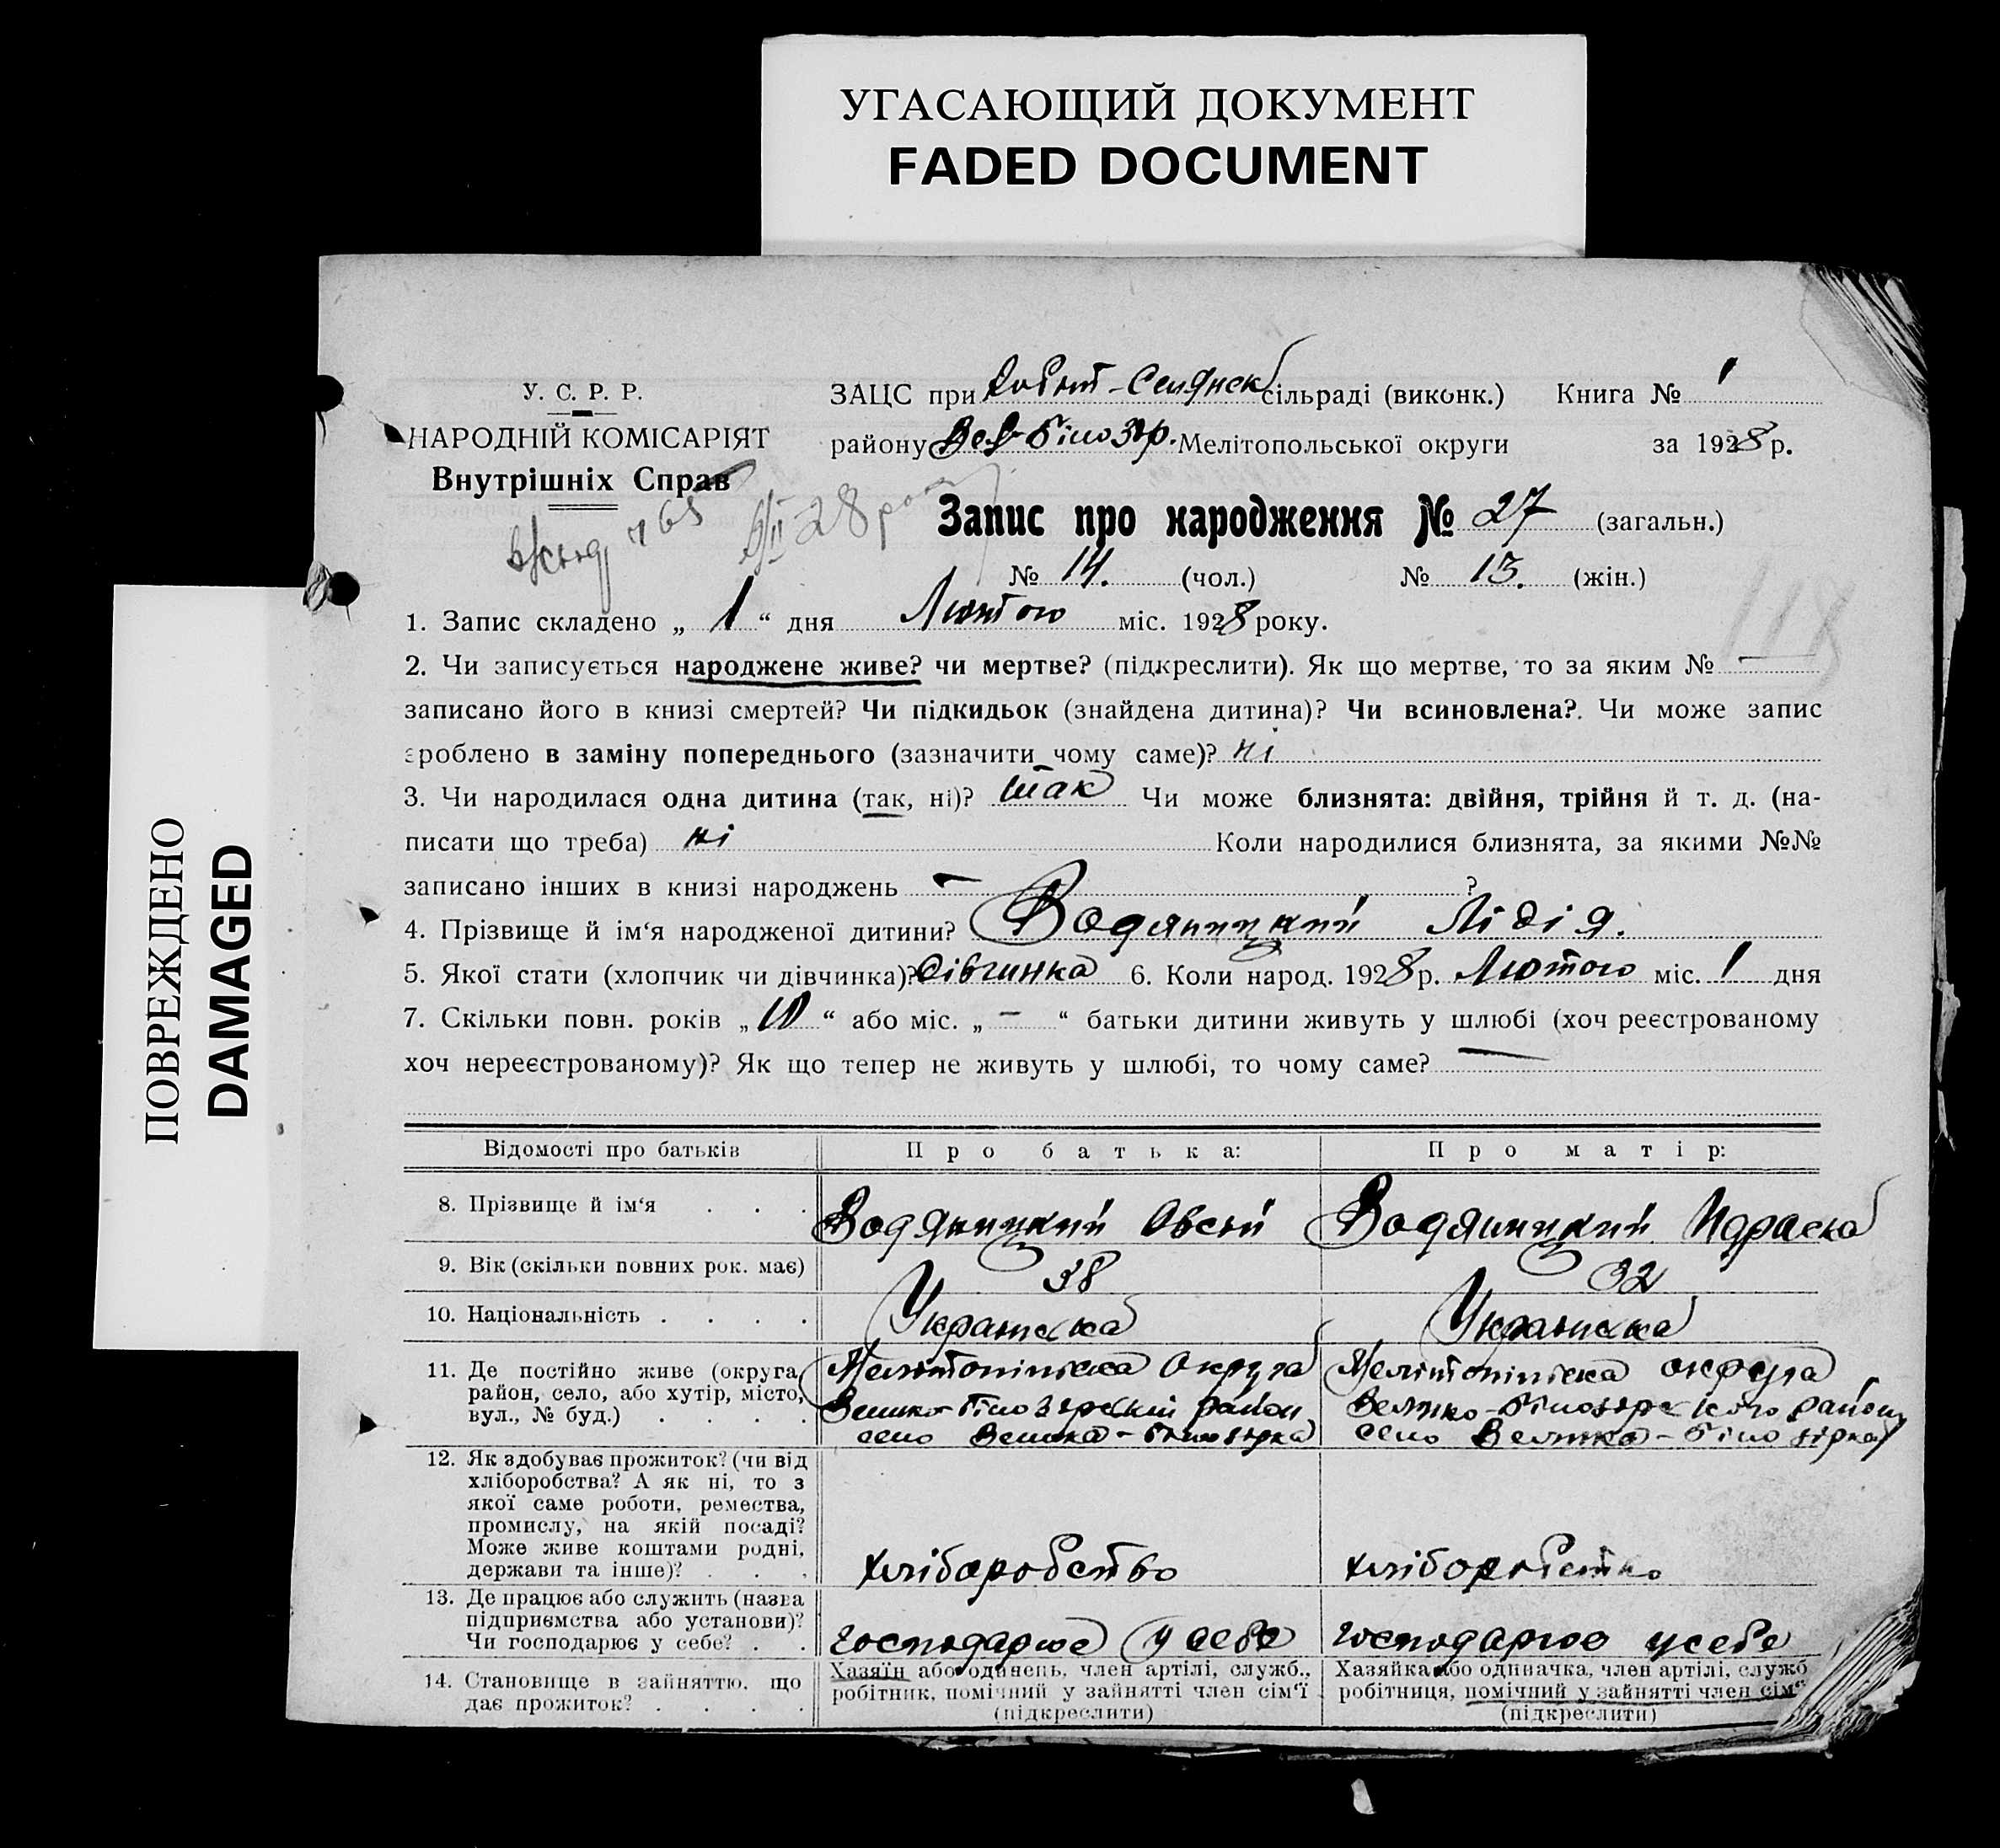 УГАСАЮЩИЙ ДОКУМЕНТ
FADED DOCUMENT
ПОВРЕЖДЕНО
DAMAGED
У. С. Р. Р.
НАРОДНІЙ КОМІСАРІЯТ
Внутрішніх Справ
ЗАЦС при сільраді (виконк.) Книга № 1
району Мелітопольської округи за 1928 р.
28
Запис про народження № 27 (загальн.)
№ 14. (чол.) № 13. (жін.)
118
1. Запис складено „ 1 “ дня Лютого міс. 1928 року.
2. Чи записується народжене живе? чи мертве? (підкреслити). Як що мертве, то за яким № —
записано його в книзі смертей? Чи підкидьок (знайдена дитина)? Чи всиновлена?. Чи може запис
зроблено в заміну попереднього (зазначити чому саме)? ні
3. Чи народилася одна дитина (так, ні)? так Чи може близнята: двійня, трійня й т. д. (на-
писати що треба) ні Коли народилися близнята, за якими №№
записано інших в книзі народжень — ?
4. Прізвище й ім‘я народженої дитини? Водяницкий Лідія.
5. Якої стати (хлопчик чи дівчинка)? дівчинка 6. Коли народ. 1928 р. Лютого міс. 1 дня
7. Скільки повн. років „ 10 “ або міс. „ — “ батьки дитини живуть у шлюбі (хоч реєстрованому
хоч нереєстрованому)? Як що тепер не живуть у шлюбі, то чому саме? —
Відомості про батьків Про батька: Про матір:
8. Прізвище й ім‘я . . . Водяницкий Овсій Водяницкий
9. Вік (скільки повних рок. має) 38 32
10. Національність . . . . Українська Українська
11. Де постійно живе (округа, район, село, або хутір, місто, вул., № буд.) . . . .
Мелітопільска Округа Мелітопільска округа
Велико-Білозерский район Велико-Білозерского району
село Велика-Білозірка село Велика-Білозірка
12. Як здобуває прожиток? (чи від
хліборобства? А як ні, то з
якої саме роботи, ремества,
промислу, на якій посаді?
Може живе коштами родні,
держави та інше)? . . .
хліборобство хліборобство
13. Де працює або служить (назва
підприємства або установи)?
Чи господарює у себе? . .
господарює у себе господарює у себе
14. Становище в зайняттю, що
дає прожиток? . . . .
Хазяїн або одинець, член артілі, служб., Хазяйка або одиначка, член артілі, служб
робітник, помічний у зайнятті член сім‘ї робітниця, помічний у зайнятті член сім‘ї
(підкреслити) (підкреслити)